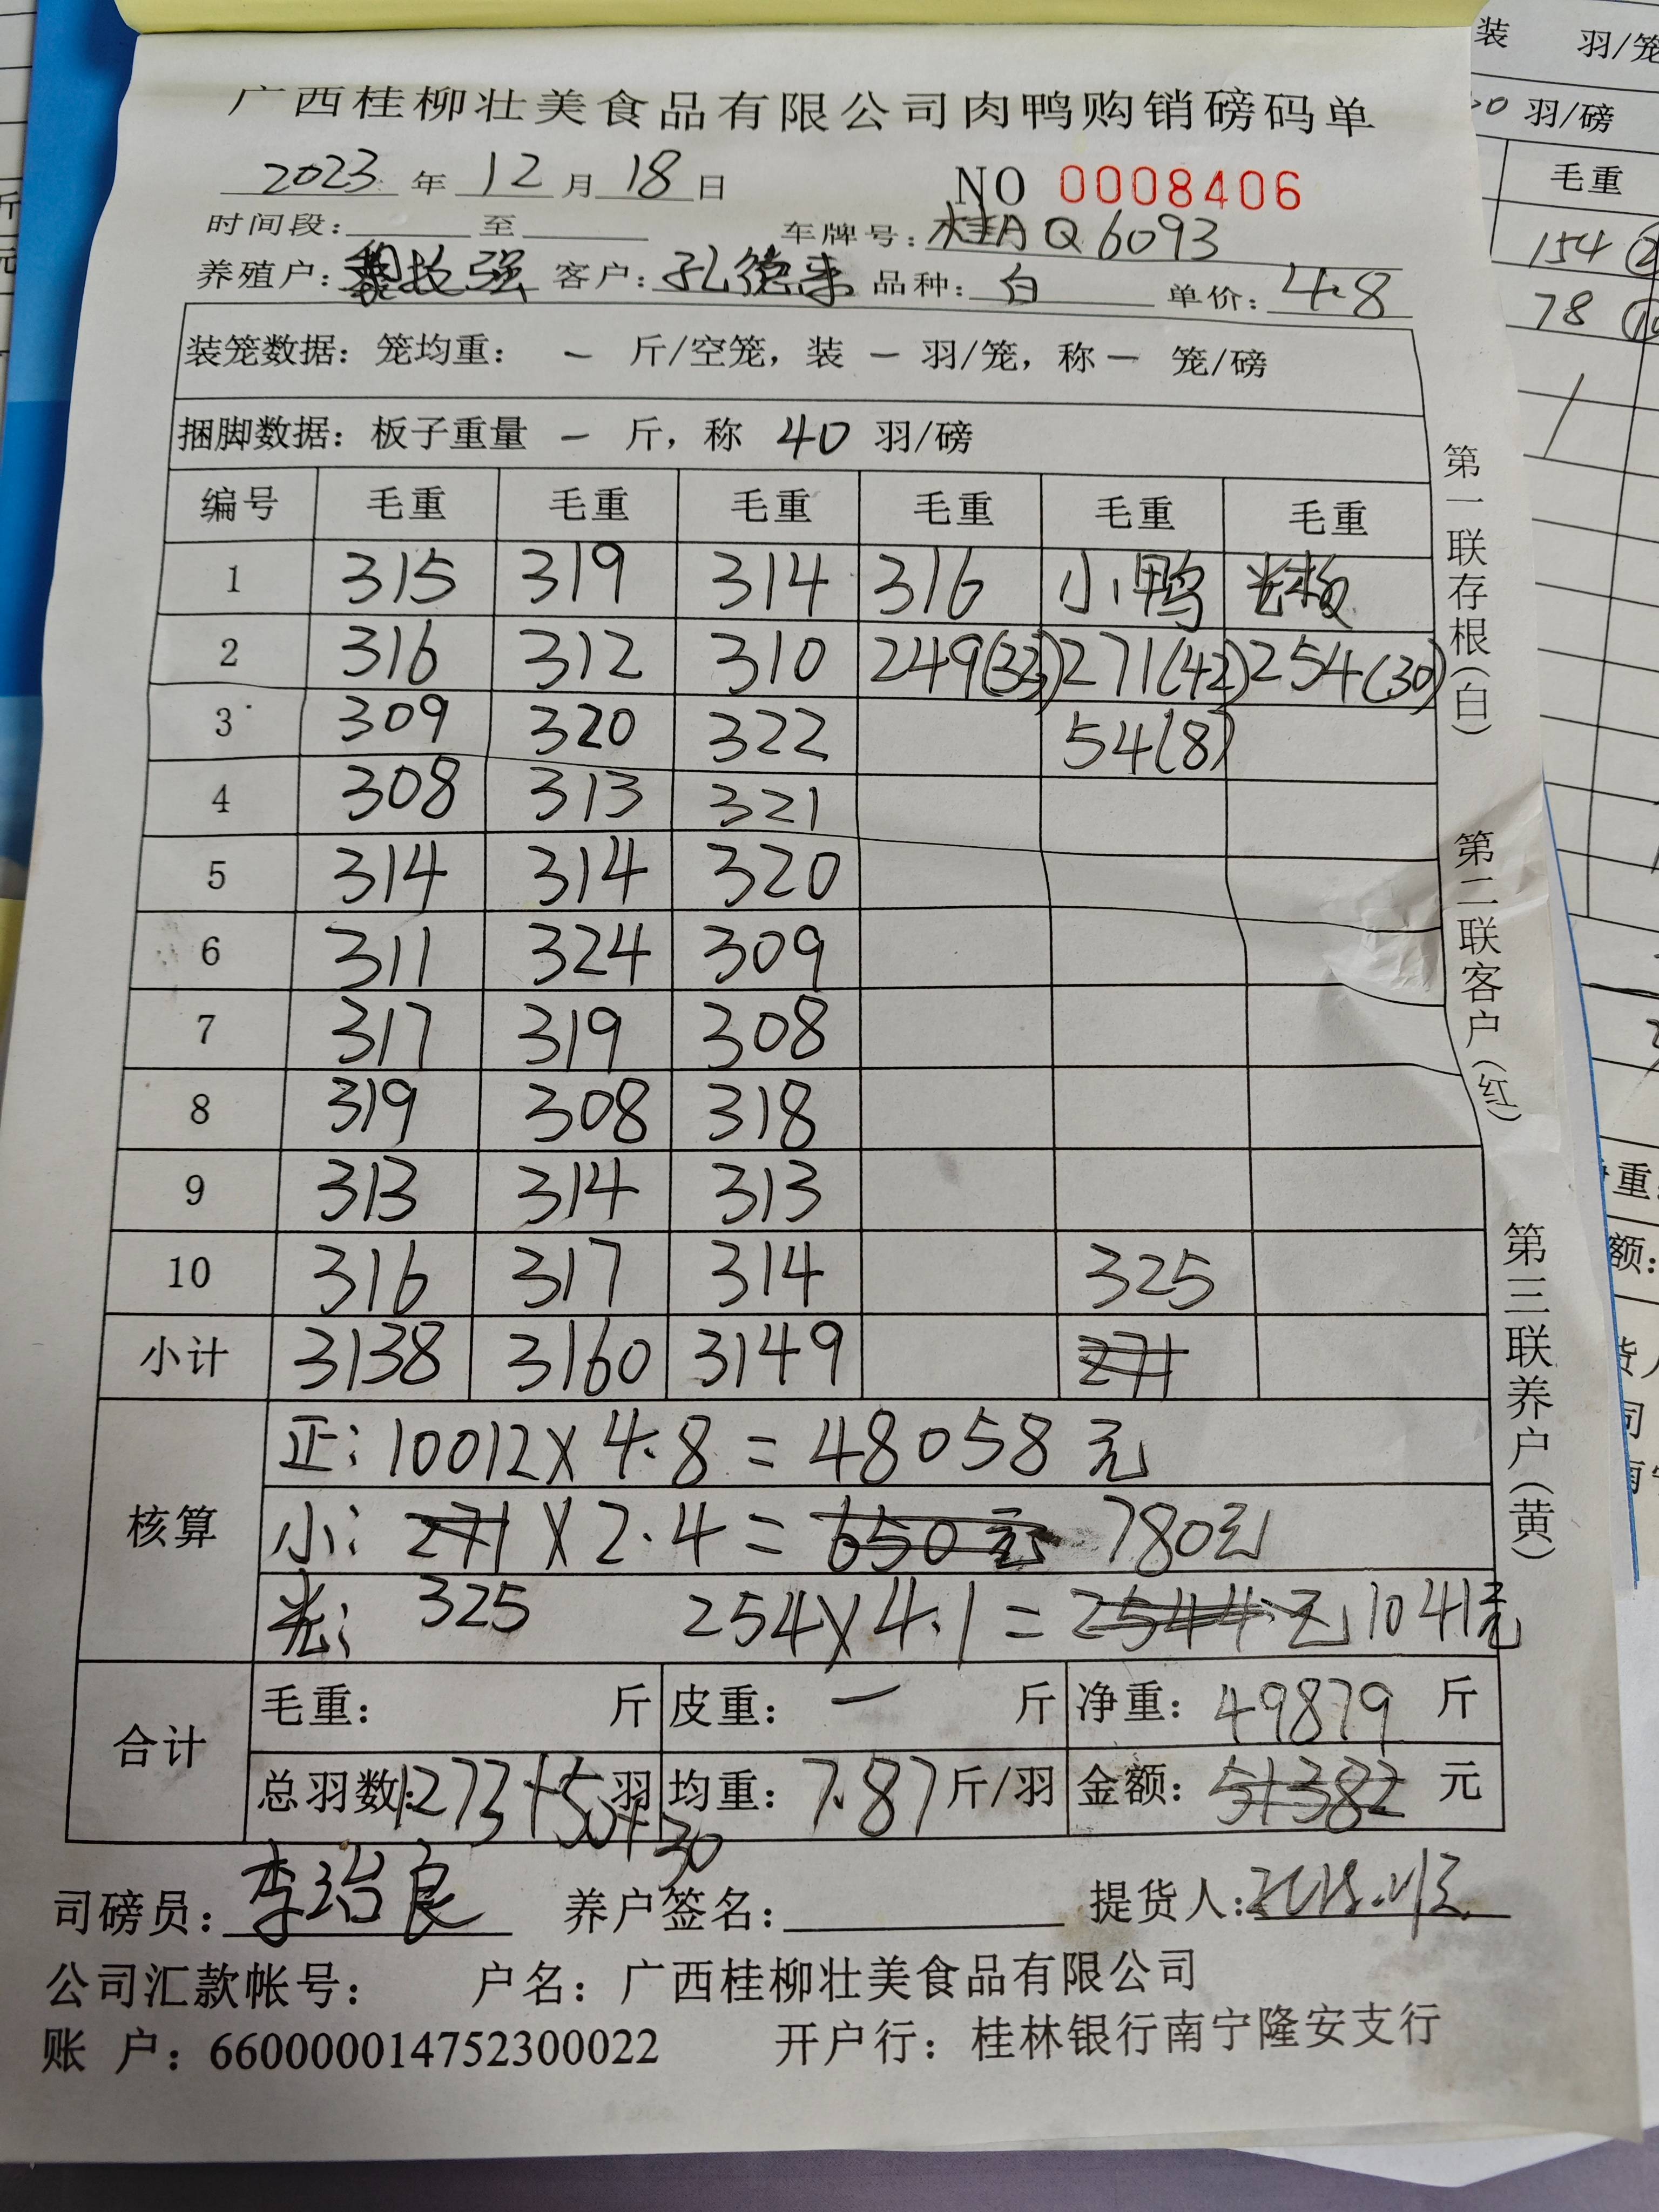 广西桂柳壮美食品有限公司肉鸭购销磅码单
2023 年 12 月 18 日 NO 0008406
时间段: 至 车牌号: 桂A Q6093
养殖户: 强 客户: 孔德来 品种: 白 单价: 4.8
装笼数据: 笼均重: — 斤/空笼, 装 — 羽/笼, 称 — 笼/磅
捆脚数据: 板子重量 — 斤, 称 40 羽/磅
编号 毛重 毛重 毛重 毛重 毛重 毛重
1 315 319 314 316 小鸭 光板
2 316 312 310 249(33) 271(42) 254(30)
3 309 320 322 54(8)
4 308 313 321
5 314 314 320
6 311 324 309
7 317 319 308
8 319 308 318
9 313 314 313
10 316 317 314 325
小计 3138 3160 3149 271
核算
正: 10012×4.8=48058元
小: 271×2.4=650元 780元
光: 325 254×4.1=2544元 1041元
合计
毛重: 斤 皮重: — 斤 净重: 49879 斤
总羽数: 1273+50+30 羽 均重: 7.87 斤/羽 金额: 51382 元
司磅员: 李治良 养户签名: 提货人:
公司汇款帐号: 户名: 广西桂柳壮美食品有限公司
账 户: 660000014752300022 开户行: 桂林银行南宁隆安支行
第一联存根(白)
第二联客户(红)
第三联养户(黄)
装 羽/笼
羽/磅
毛重
154
78